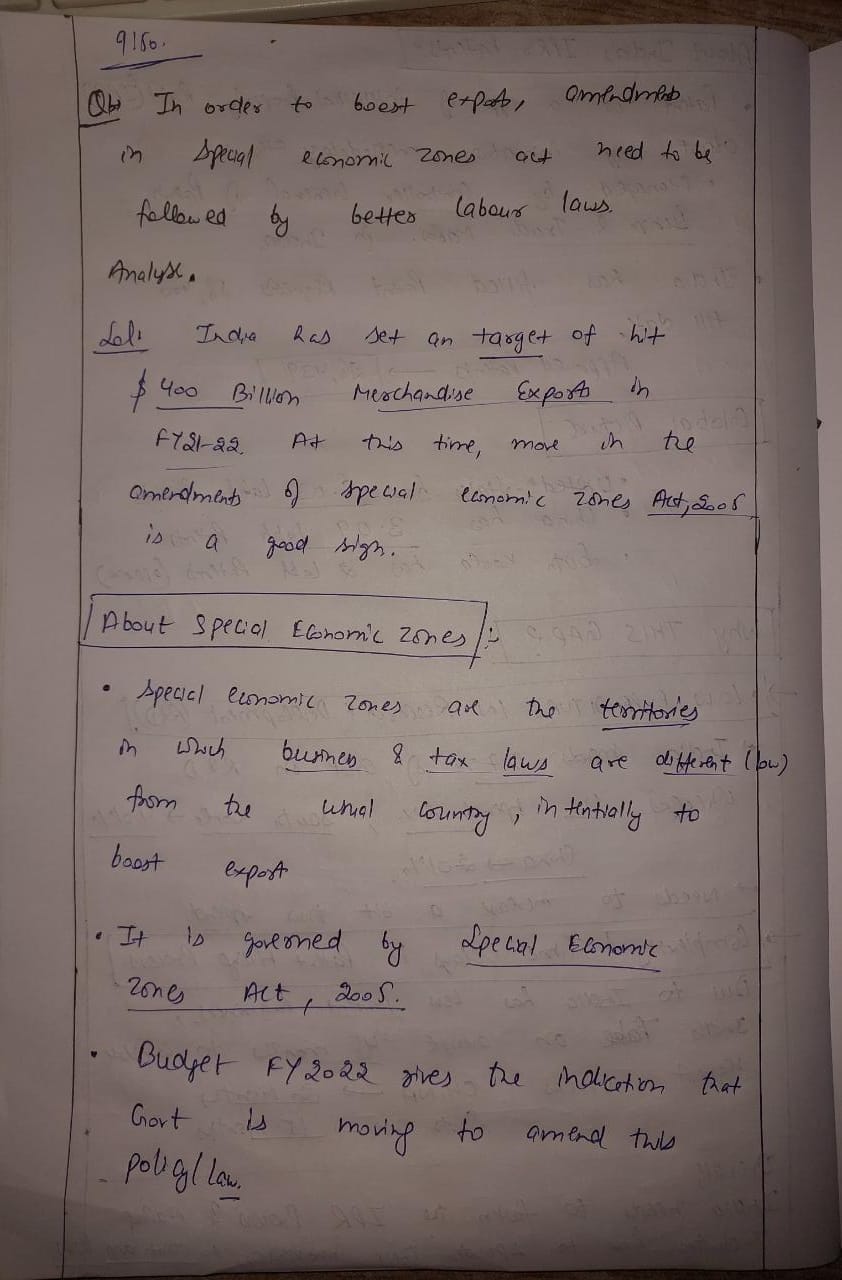 9150.
Qb) In order to boost exports, amendments
in Special economic zones act need to be
followed by better labour laws.
Analyse.
Sol: India has set an target of hit
$ 400 Billion Merchandise Exports in
FY21-22. At this time, move in the
amendments of special economic zones Act, 2005
is a good sign.
About Special Economic Zones :-
• Special economic zones are the territories
in which business & tax laws are different (low)
from the usual country, intentially to
boost export
• It is governed by Special Economic
Zones Act, 2005.
• Budget FY2022 gives the indication that
Govt is moving to amend this
policy/law.